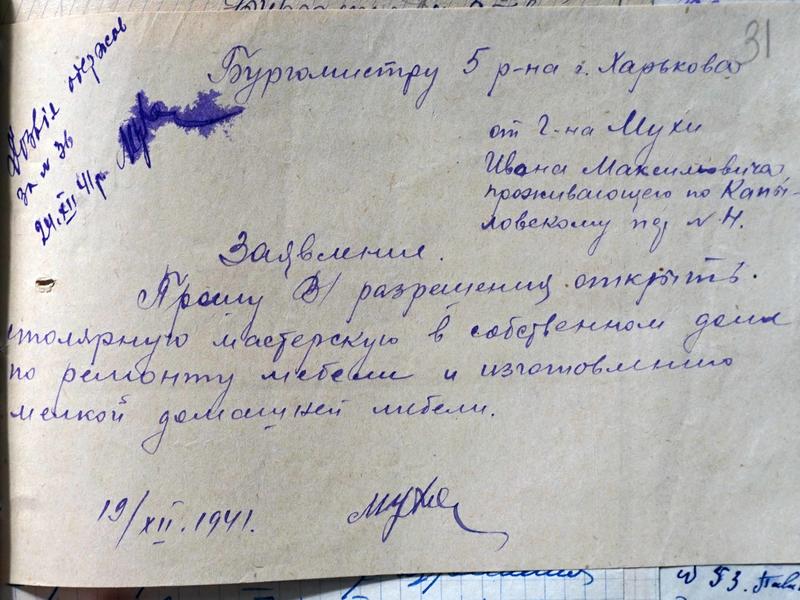 31
Дозвіл одержов
за № 36
24.XII 41 р.
Муха
Бургомистру 5 р-на г. Харькова
от г-на Мухи
Ивана Максимовича
проживающего по Капы-
ловскому пер № 4.
Заявление.
Прошу разрешения открыть
столярную мастерскую в собственном доме
по ремонту мебели и изготовлению
мелкой домашней мебели.
19/XII.1941.
Муха
№ 53.